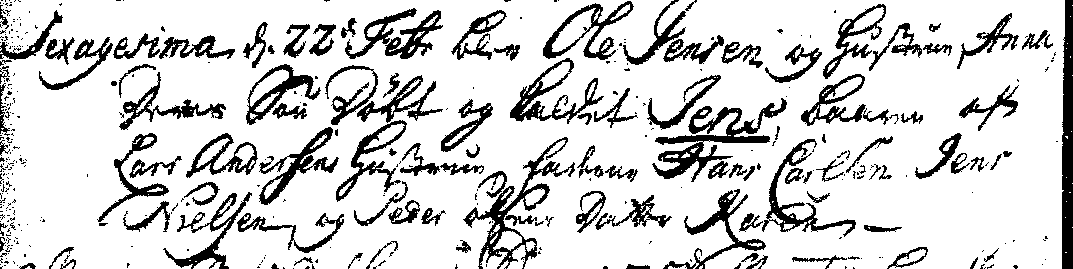 Sexagesima d. 22de Febr blev Ole Jensen og Hustrue Anna,
Deres Søn Døbt og kaldet Jens, baaren aff
Lars Andersens Hustrue, fadderne Hans Carlsen Jens
Nielsen, og Peder Olsens Datter Karen, -